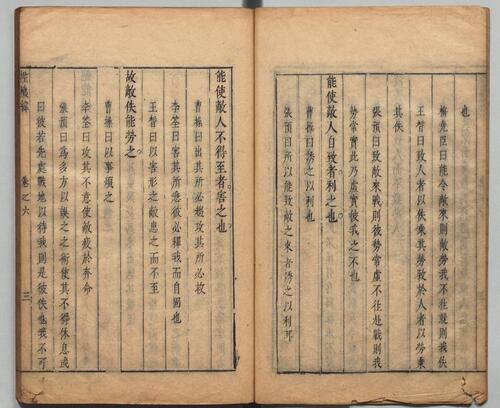 也
梅堯臣曰能令敵來則敵勞我不往就則我佚
王晳曰致人者以佚乘其勞致於人者以勞乘
其佚
張預曰致敵來戰則彼勢常虛不往赴戰則我
勢常實此乃虛實彼我之不也
能使敵人自致者利之也
曹操曰誘之以利也
張預曰所以能致敵之來者誘之以利耳
能使敵人不得至者害之也
曹操曰出其所必趨攻其所必救
李筌曰害其所急彼必釋我而自固也
王晳曰以害形之敵患之而不至
故敵佚能勞之
曹操曰以事煩之
李筌曰攻其不意使敵疲於奔命
張預曰爲多方以誤之之術使其不得休息或
曰彼若先處戰地以待我則是彼佚也我不可
卷之六
三